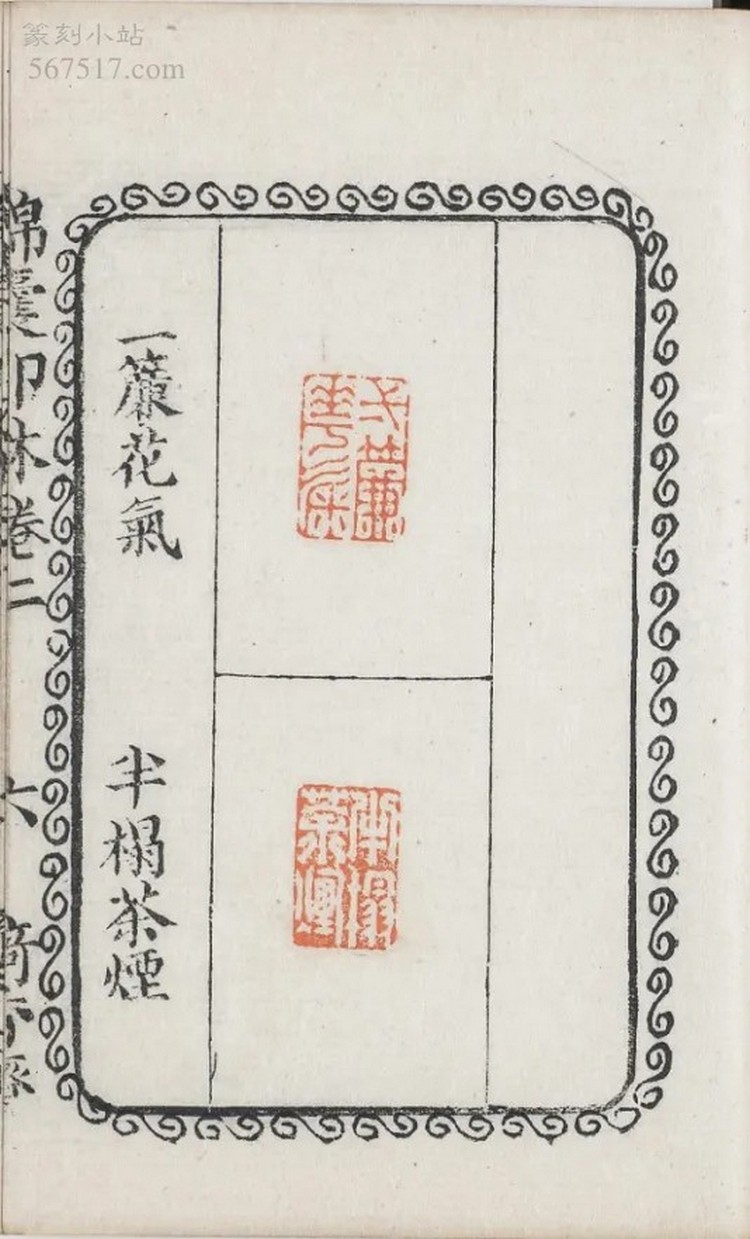 篆刻小站
567517.com
一簾花氣
半榻茶煙
錦囊印林卷二
六